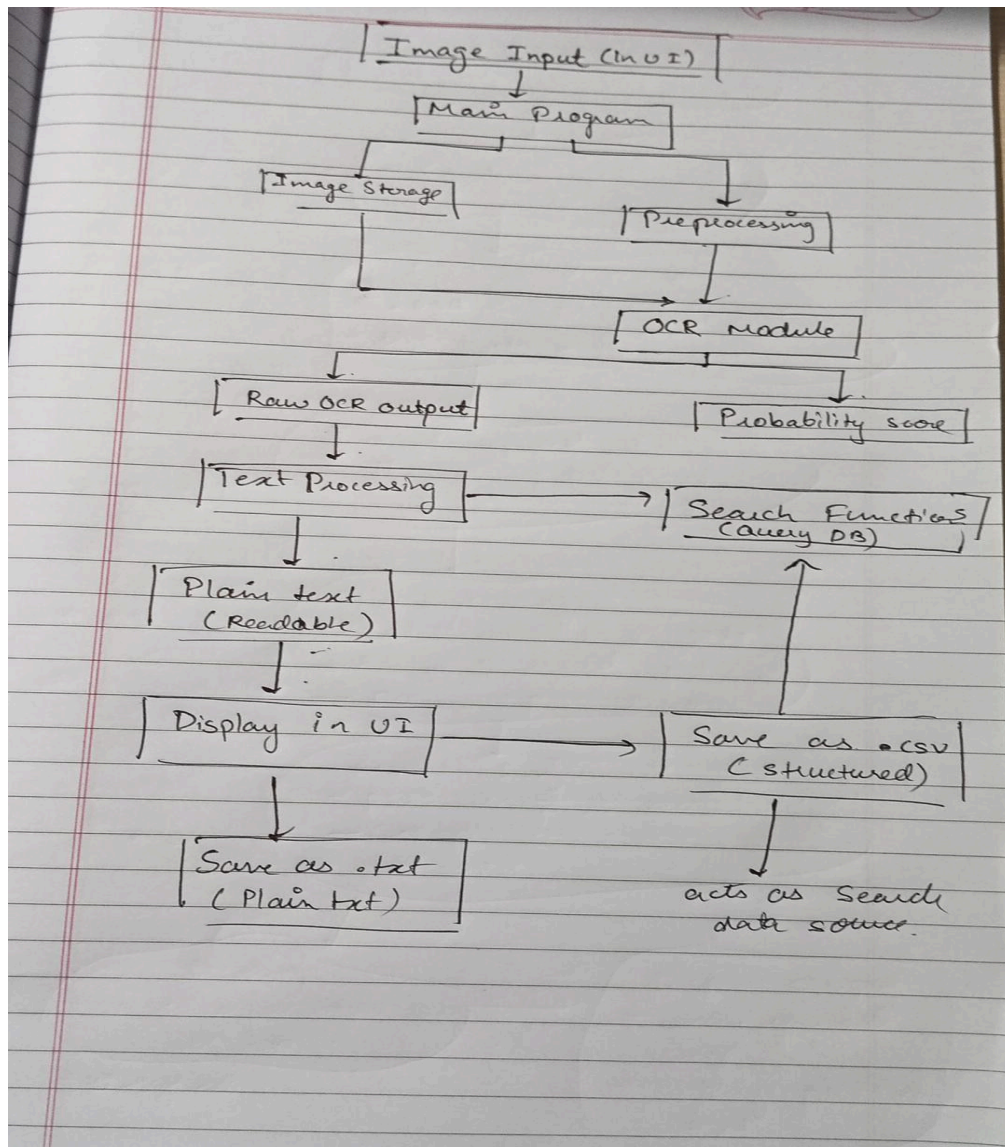 Image Input (in UI)
Main Program
Image Storage
Preprocessing
OCR Module
Raw OCR output
Probability score
Text Processing
Search Functions
(Query DB)
Plain text
(Readable)
Display in UI
Save as .csv
(structured)
Save as .txt
(Plain txt)
acts as Search
data source.